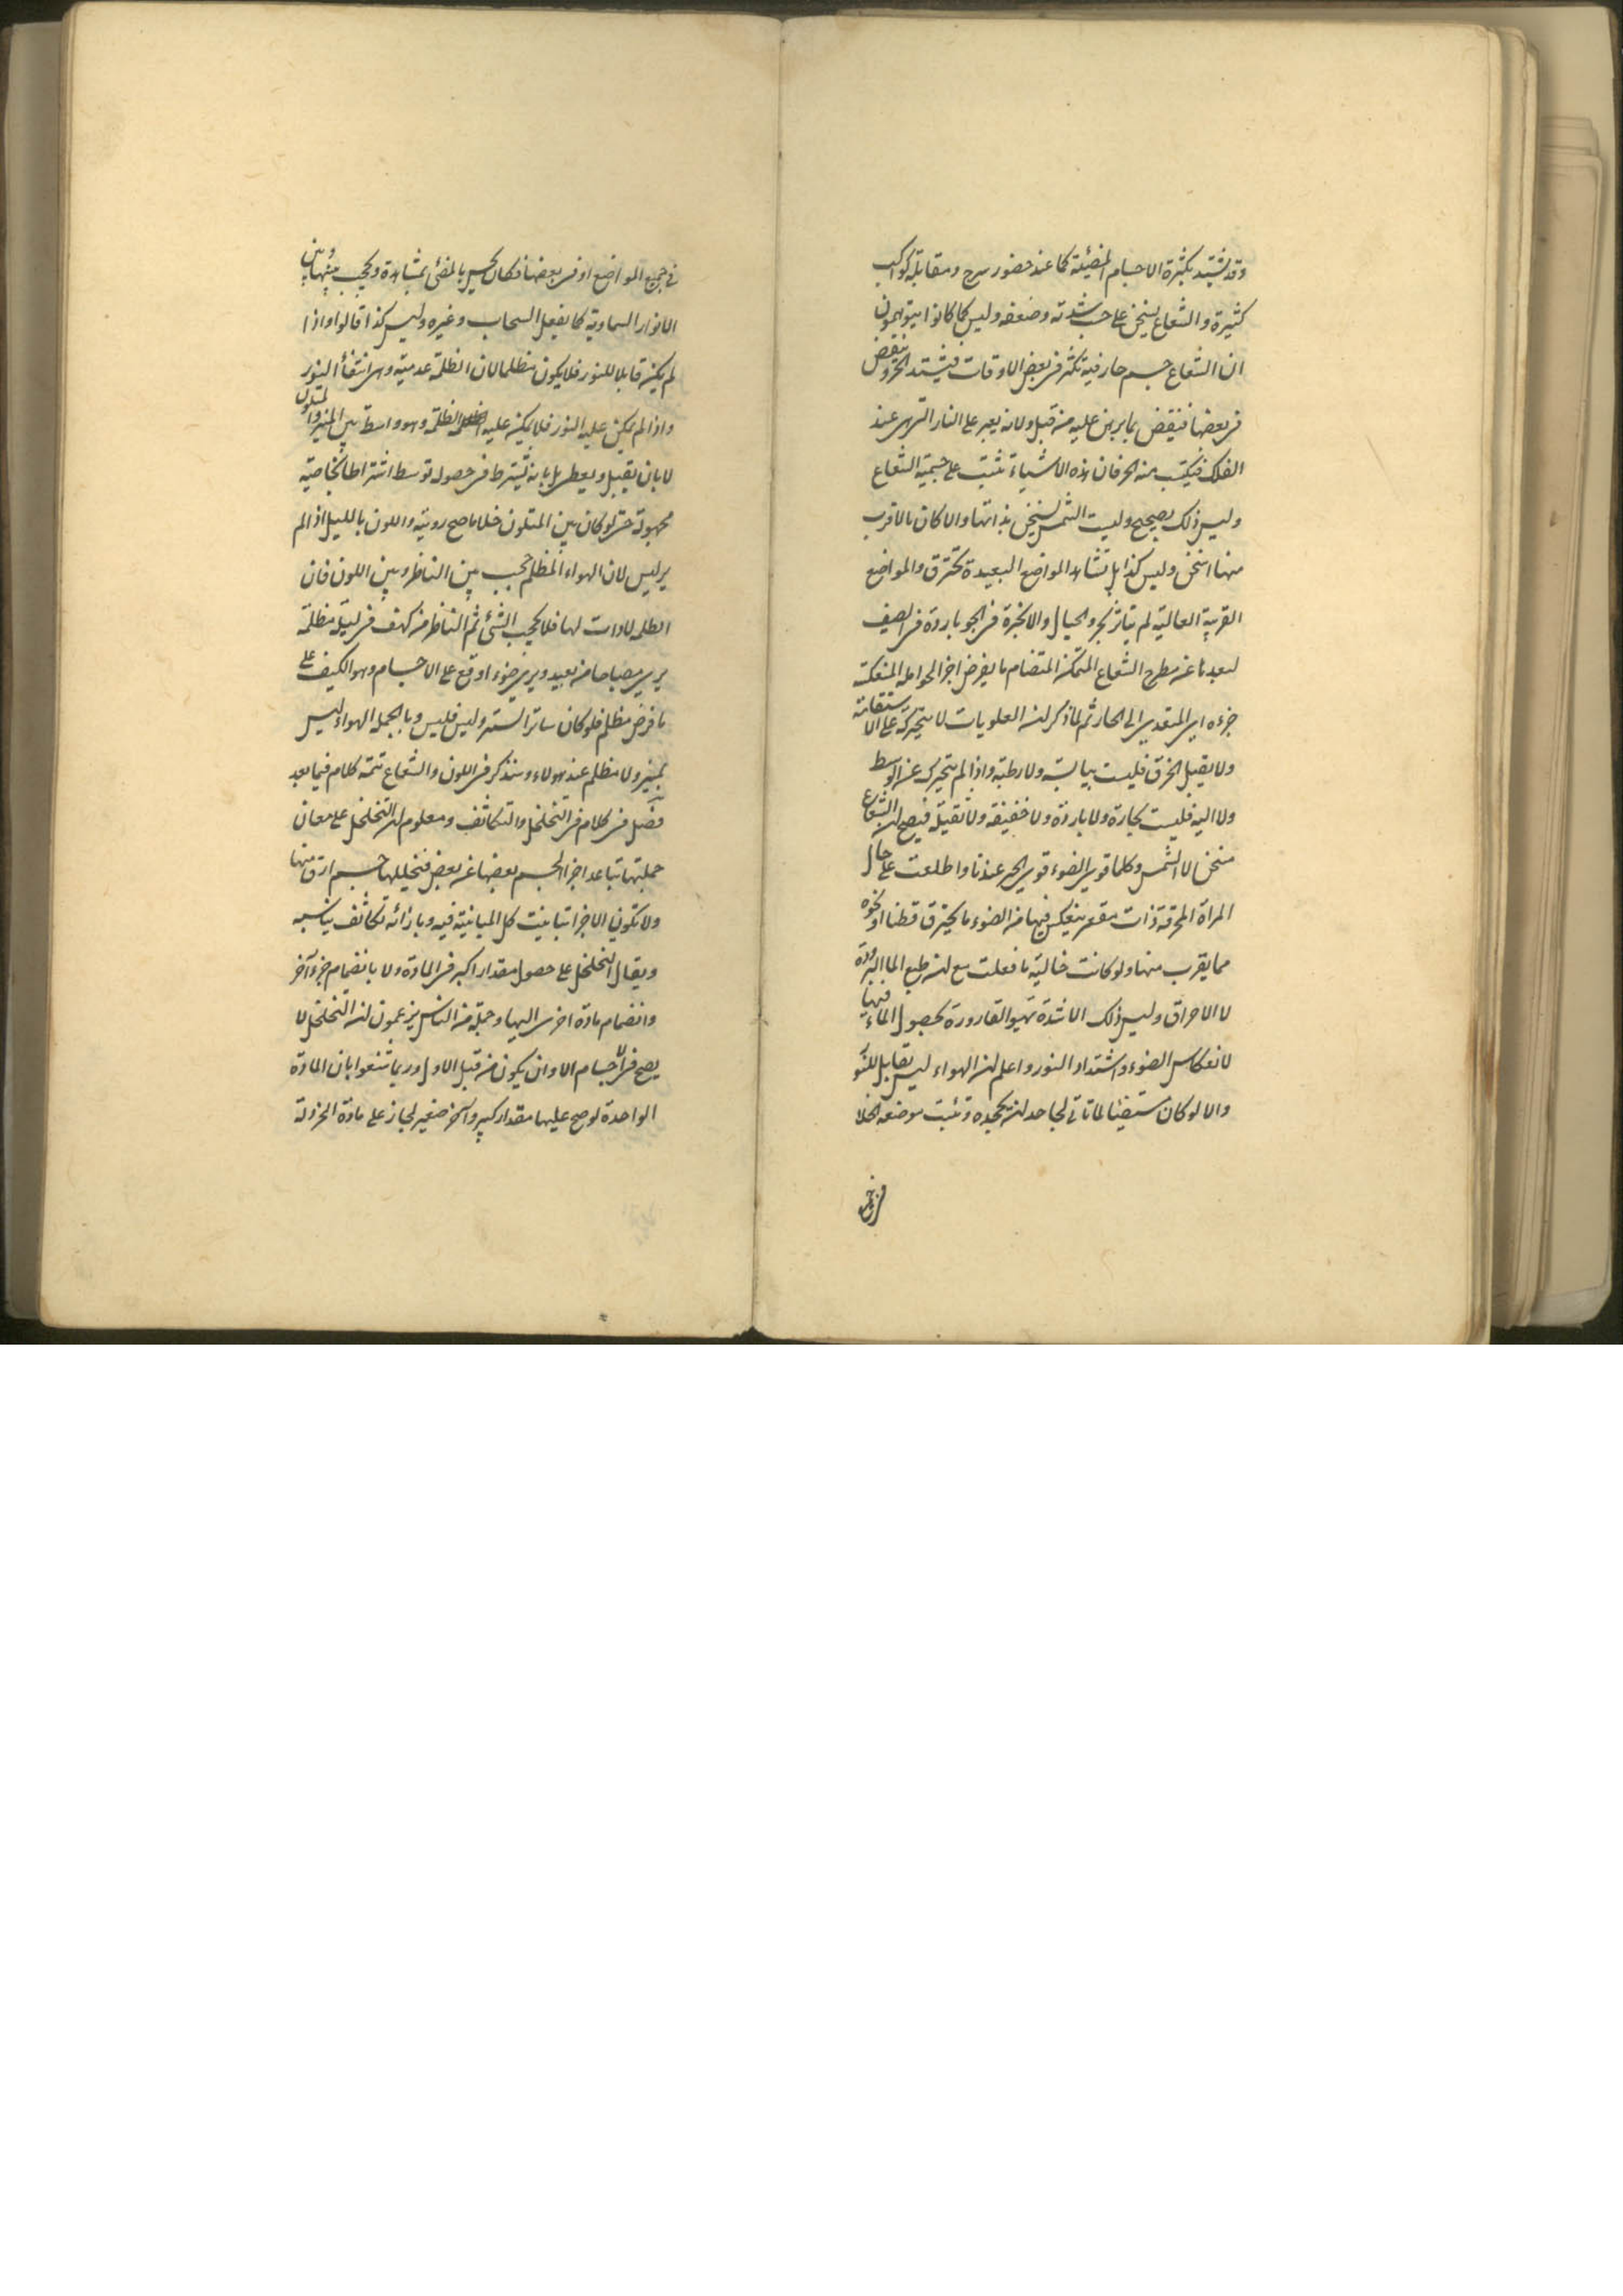 وقد يشتد بكثرة الاجسام المضيئة كما عند حضور سرج ومقابلة كواكب
كثيرة والشعاع يسخن على حسب شدته وضعفه وليس كما كانوا يتوهمون
ان الشعاع جسم حار فيه تكثر فى بعض الاوقات فيشتد الحر وينقص
فى بعضها فينقض بما يرهن عليه من قبل ولانه يعبر على النار التى هى عند
الفلك فيكتسب منه الحر فان هذه الاشياء تثبت على جسمية الشعاع
وليس ذلك بصحيح وليست الشمس تسخن بذاتها والا كان ما لاقرب
منها اسخن وليس كذا بل تشاهد المواضع البعيدة تحترق والمواضع
القريبة العالية لم يتاثر بحر والجبال والابخرة فى الجو باردة فى الصيف
لبعدها عن مطرح الشعاع المتمكن المتضام ما يفرض اجزا لحوامله المنعكسة
جزءه اى المتعدى الى الحار ثم لما ذكر ان العلويات لا تتحرك على الاستقامة
ولا يقبل الخرق فليست بيابسة ولا رطبة واذا لم تتحرك عن الوسط
ولا اليه فليست بحارة ولا باردة ولا خفيفة ولا ثقيلة فيصح ان الشعاع
مسخن لا الشمس وكلما قوى الضوء قوى الحر عندنا واطلعت على حال
المراة المحرقة ذات مقعر ينعكس فيها من الضوء ما يحترق قطنا او نحوه
مما يقرب منها ولو كانت خالية ما فعلت مع ان طبع الماء البرودة
لا الاحراق وليس ذلك الا شدة تهيو القارورة بحصول الماء فيها
لانعكاس الضوء واشتداد النور واعلم ان الهواء ليس بقابل للنور
والا لو كان مستضيئا لما تاتى لجاحد ان يجحده وتثبت موضعه الخلا
فى جميع
فى جميع المواضع او فى بعضها فكان يحس بالمضئ بمشاهدة ويحجب بيننا وبين
الانوار السماوية كما يفعل السحاب وغيره وليس كذا قالوا واذا
لم يكن قابلا للنور فلا يكون مظلما لان الظلمة عدمية وهى انتفأ النور
واذا لم يمكن عليه النور فلا يمكن عليه الظلمة وهو واسطة بين المنير والمتلون
لا بان يقبل ويعطى بل بانه يشترط فى حصوله توسط اشتراطا لخاصية
مجهولة حتى لو كان بين المتلون خلا ما صح رويته واللون بالليل اذا لم
ير ليس لان الهواء المظلم حجب بين الناظر وبين اللون فان
الظلمة لا ذات لها فلا يحجب الشئ ثم الناظر من كهف فى ليلة مظلمة
يرى مصباحا من بعيد ويرى ضوءا وقع على الاجسام وهو الكيف على
ما فرض مظلم فلو كان ساترا لستره وليس فليس وبالجملة الهواء ليس
بمنير ولا مظلم عند هولاء وسنذكر فى اللون والشعاع تتمة كلام فيما بعد
فصل فى كلام فى التخلخل والتكاثف ومعلوم ان التخلخل على معان
جملتها تباعد اجزا الجسم بعضها عن بعض فتخللها جسم ارق منها
ولا تكون الاجزا تباينت كل المباينة فيه وبازائه تكاثف يناسبه
ويقال التخلخل على حصول مقدار اكبر فى المادة ولا بانضمام جزء آخر
وانضمام مادة اخرى اليها وجملة من الناس يزعمون ان التخلخل لا
يصح فى الاجسام الا وان يكون من قبل الاول وربما تشنعوا بان المادة
الواحدة لو صح عليها مقدار كبير وآخر صغير لجاز على مادة الخردلة